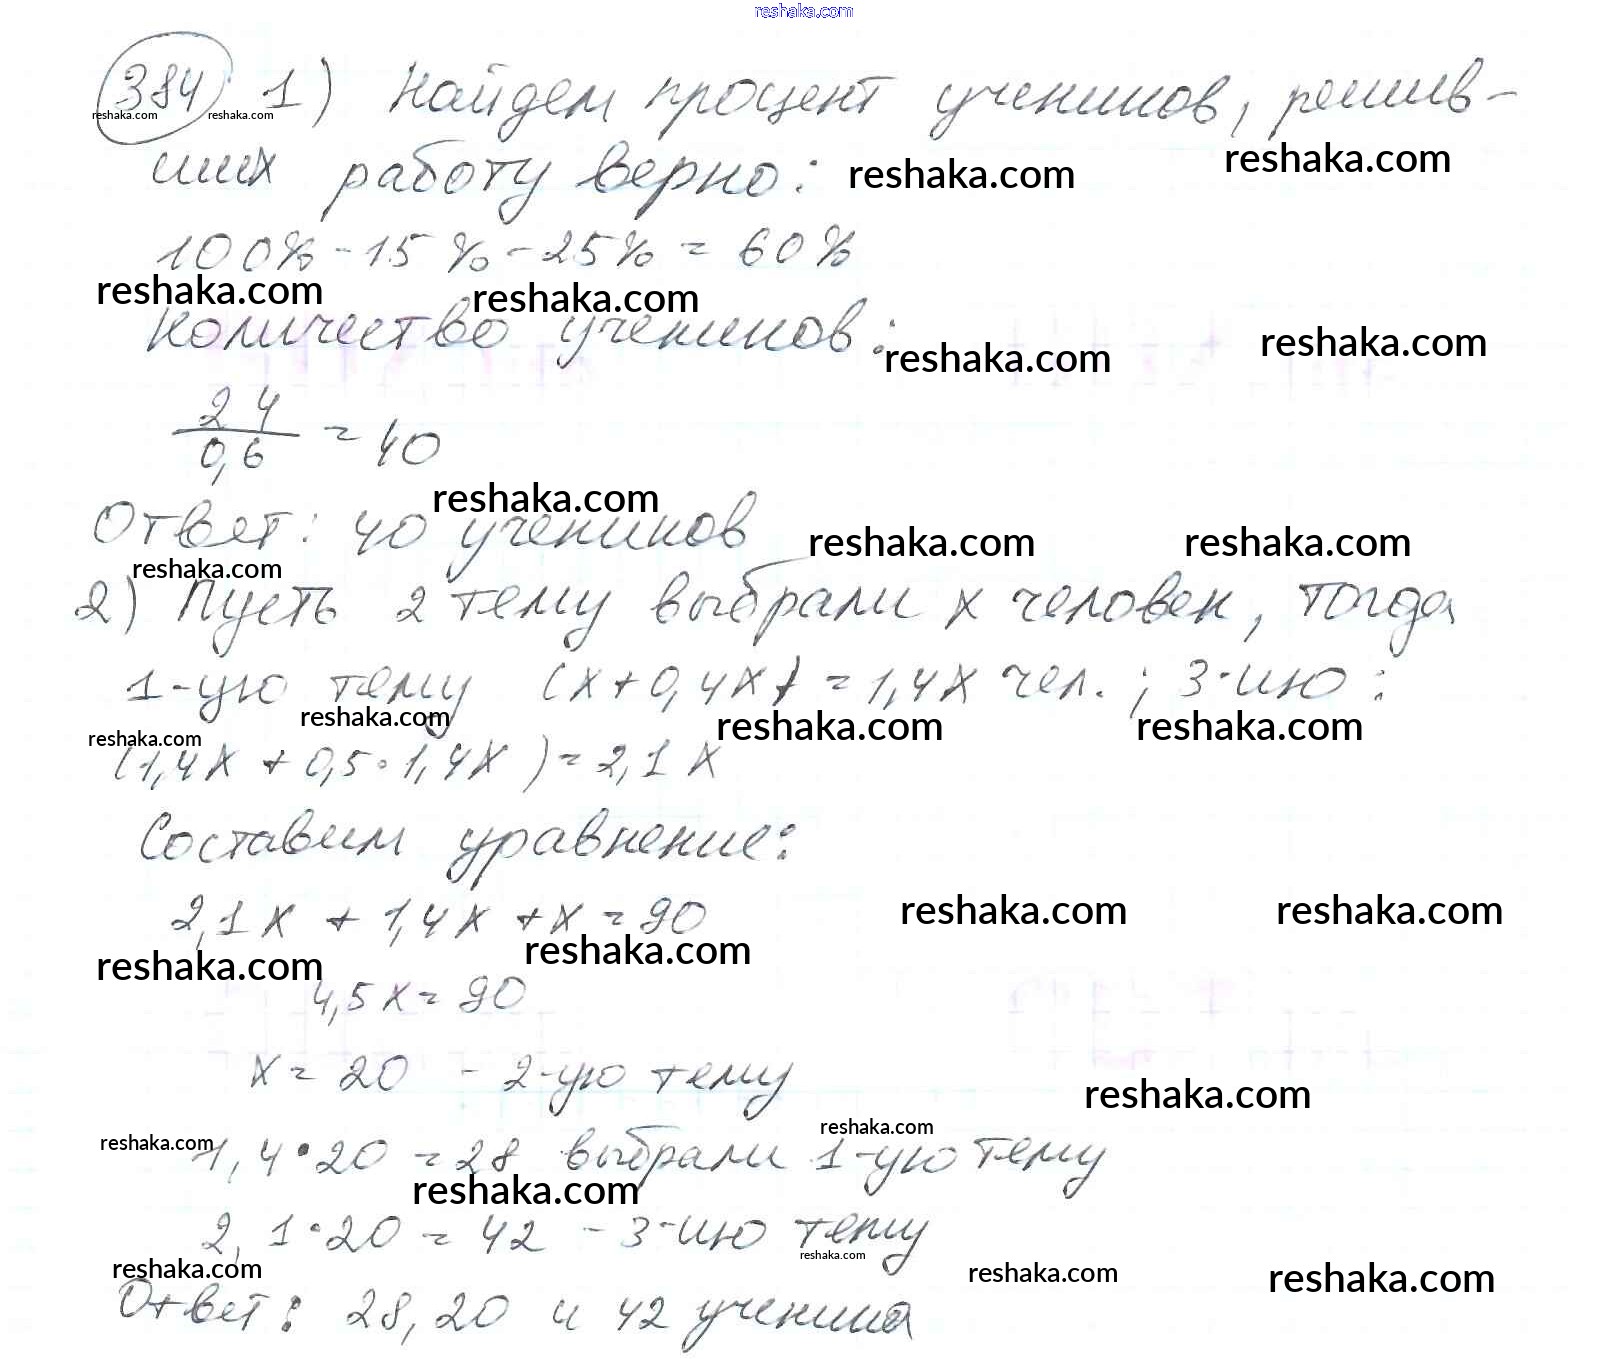 reshaka.com
384. 1) Найдем процент учеников, решив-
reshaka.com reshaka.com
ших работу верно: reshaka.com reshaka.com
100% - 15% - 25% = 60%
reshaka.com reshaka.com
Количество учеников: reshaka.com reshaka.com
24/0,6 = 40
reshaka.com
Ответ: 40 учеников reshaka.com reshaka.com
reshaka.com
2) Пусть 2 тему выбрали x человек, тогда
1-ую тему (x + 0,4x) = 1,4x чел.; 3-ию:
reshaka.com reshaka.com reshaka.com
reshaka.com
(1,4x + 0,5 · 1,4x) = 2,1x
Составим уравнение:
2,1x + 1,4x + x = 90 reshaka.com reshaka.com
reshaka.com reshaka.com
4,5x = 90
x = 20 - 2-ую тему
reshaka.com
reshaka.com reshaka.com
1,4 · 20 = 28 выбрали 1-ую тему
reshaka.com
2,1 · 20 = 42 - 3-ию тему
reshaka.com
reshaka.com reshaka.com reshaka.com
Ответ: 28, 20 и 42 ученика